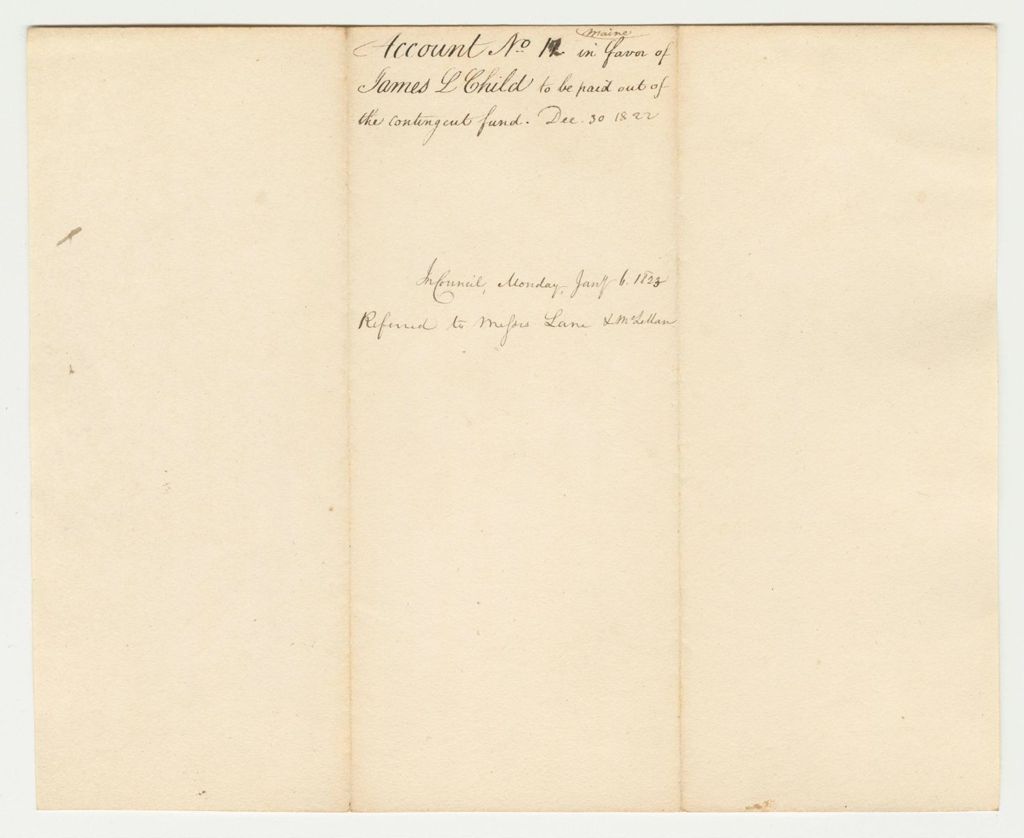 Maine
Account No 12 in favor of
James L Child to be paid out of
the contingent fund. Dec. 30 1822
In Council, Monday, Jany 6. 1823
Referred to Messrs Lane & McLellan